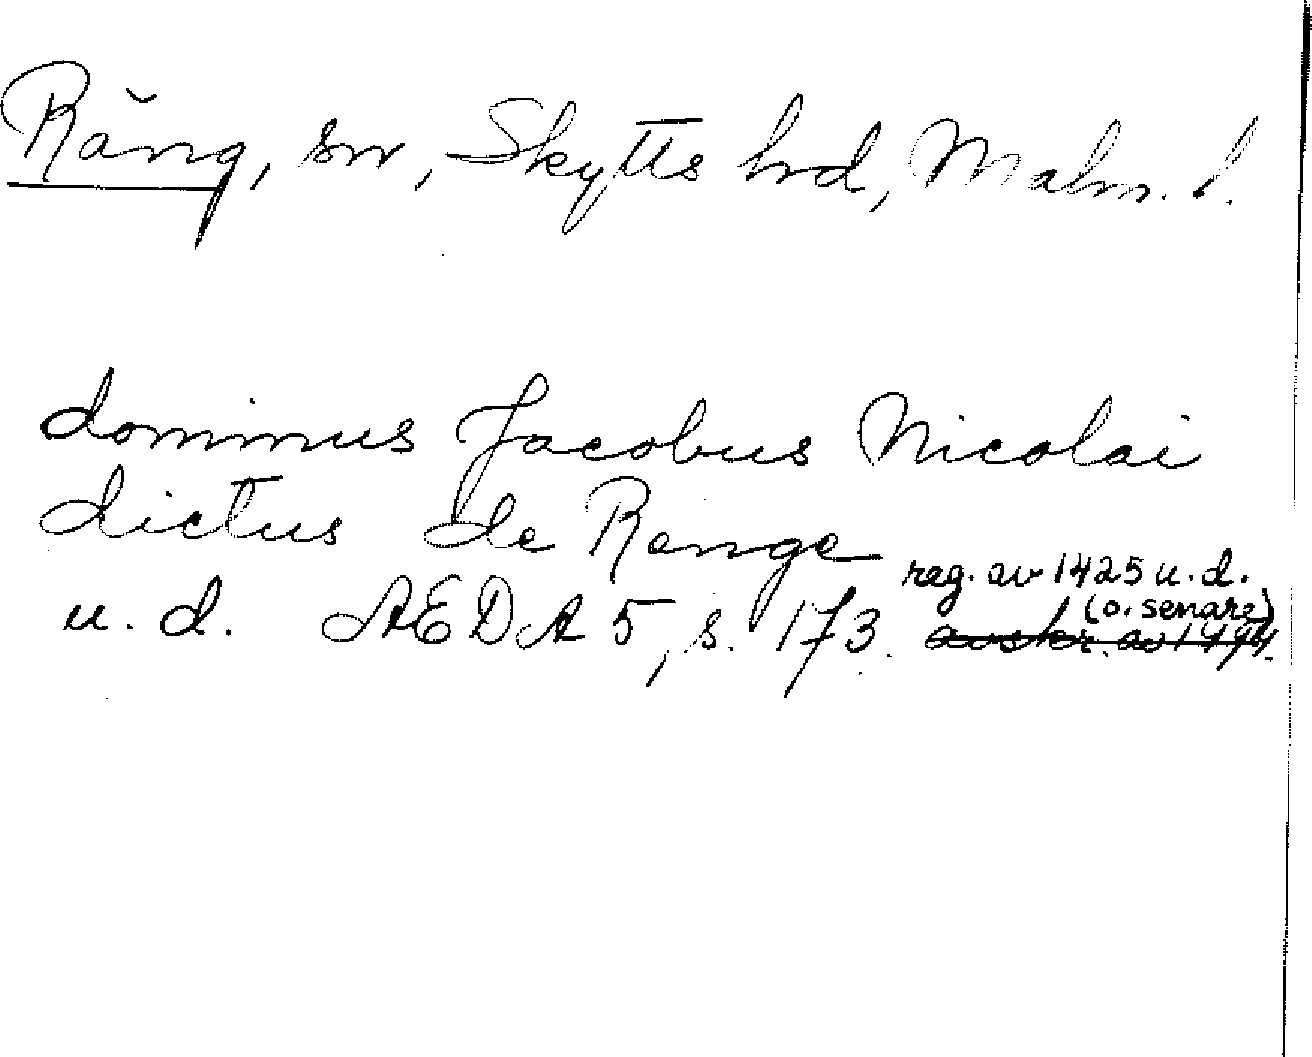 Räng, sn, Skytts hrd, Malm. l.
dominus Jacobus Nicolai
dictus de Renge
reg. av 1425 u. d.
(o. senare)
u. d. AEDA 5, s. 173. avskr. av 1494.